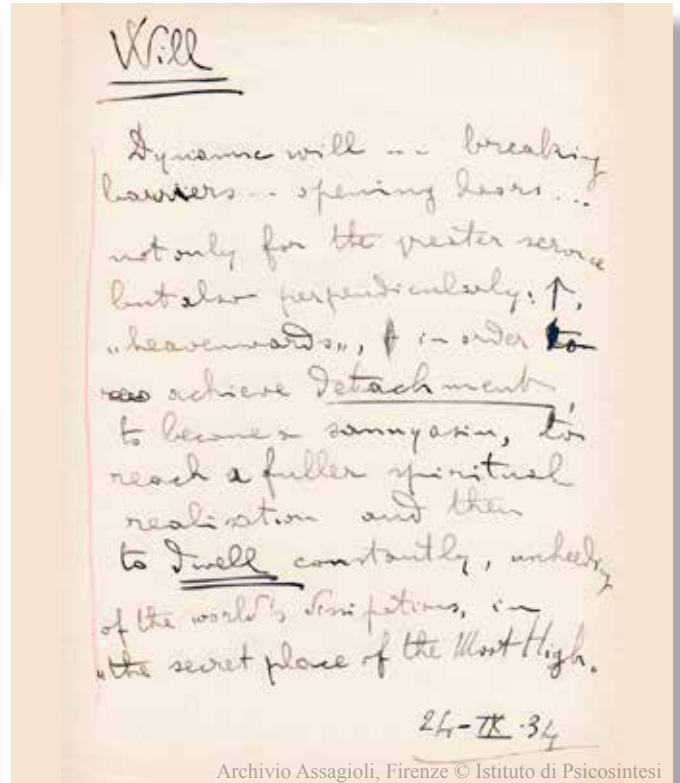 Will
Dynamic will -- breaking
barriers -- opening doors...
not only for the greater service
but also perpendicularly: ↑,
„heavenwards„, in order to
achieve detachment,
to become a sannyasin, to
reach a fuller spiritual
realisation and then
to dwell constantly, unheeding
of the world's dissipations, in
„the secret place of the Most High.
24-IX-34
Archivio Assagioli, Firenze © Istituto di Psicosintesi